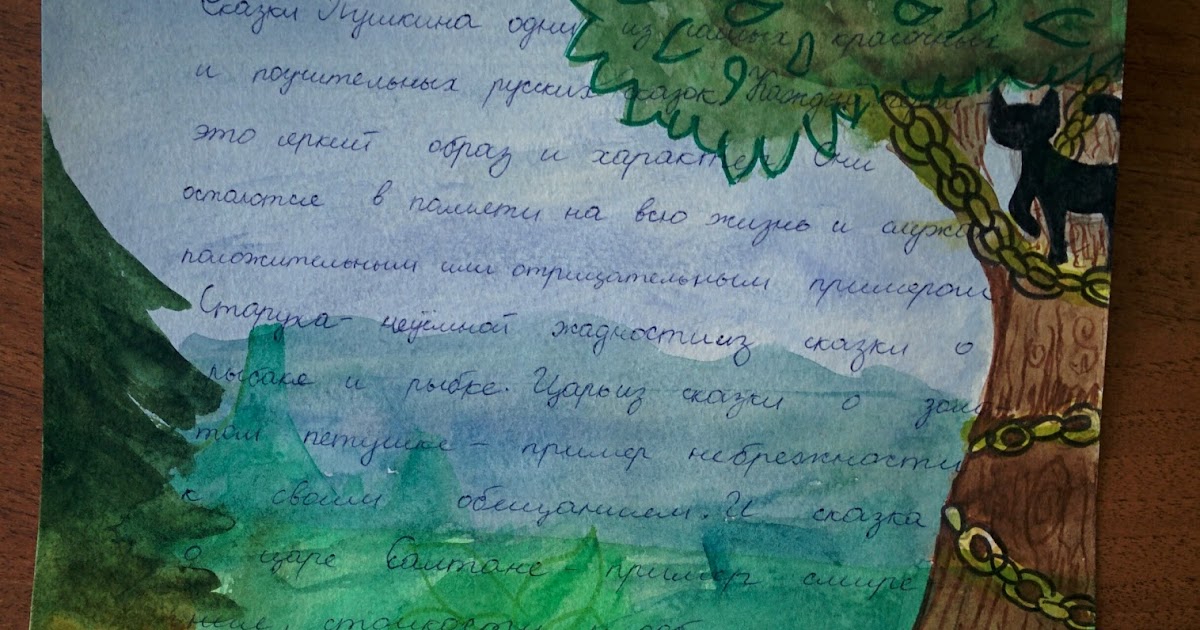 Сказки Пушкина одни из самых красочных
и поучительных русских сказок. Каждый
это яркий образ и характер. Они
остаются в памяти на всю жизнь и служа
положительным или отрицательным примером
Старуха - неуёмной жадности из сказки о
рыбаке и рыбке. Царь из сказки о золо-
том петушке - пример небрежности
к своим обещанием. И сказка
о царе Салтане - пример смире
ние, стойкости